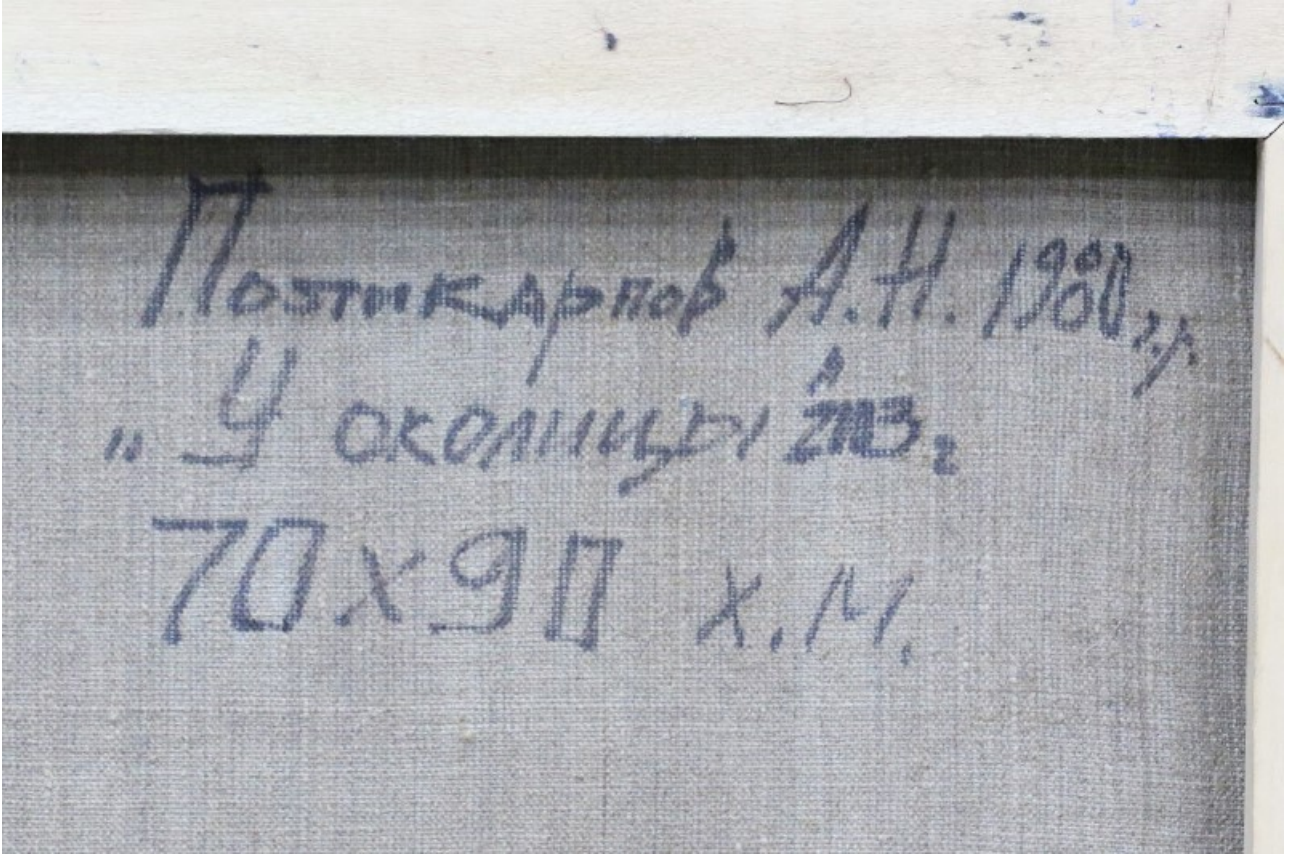 Поликарпов А.Н. 1980 г.р.
„У околицы" 2013 г
70х90 х.м.